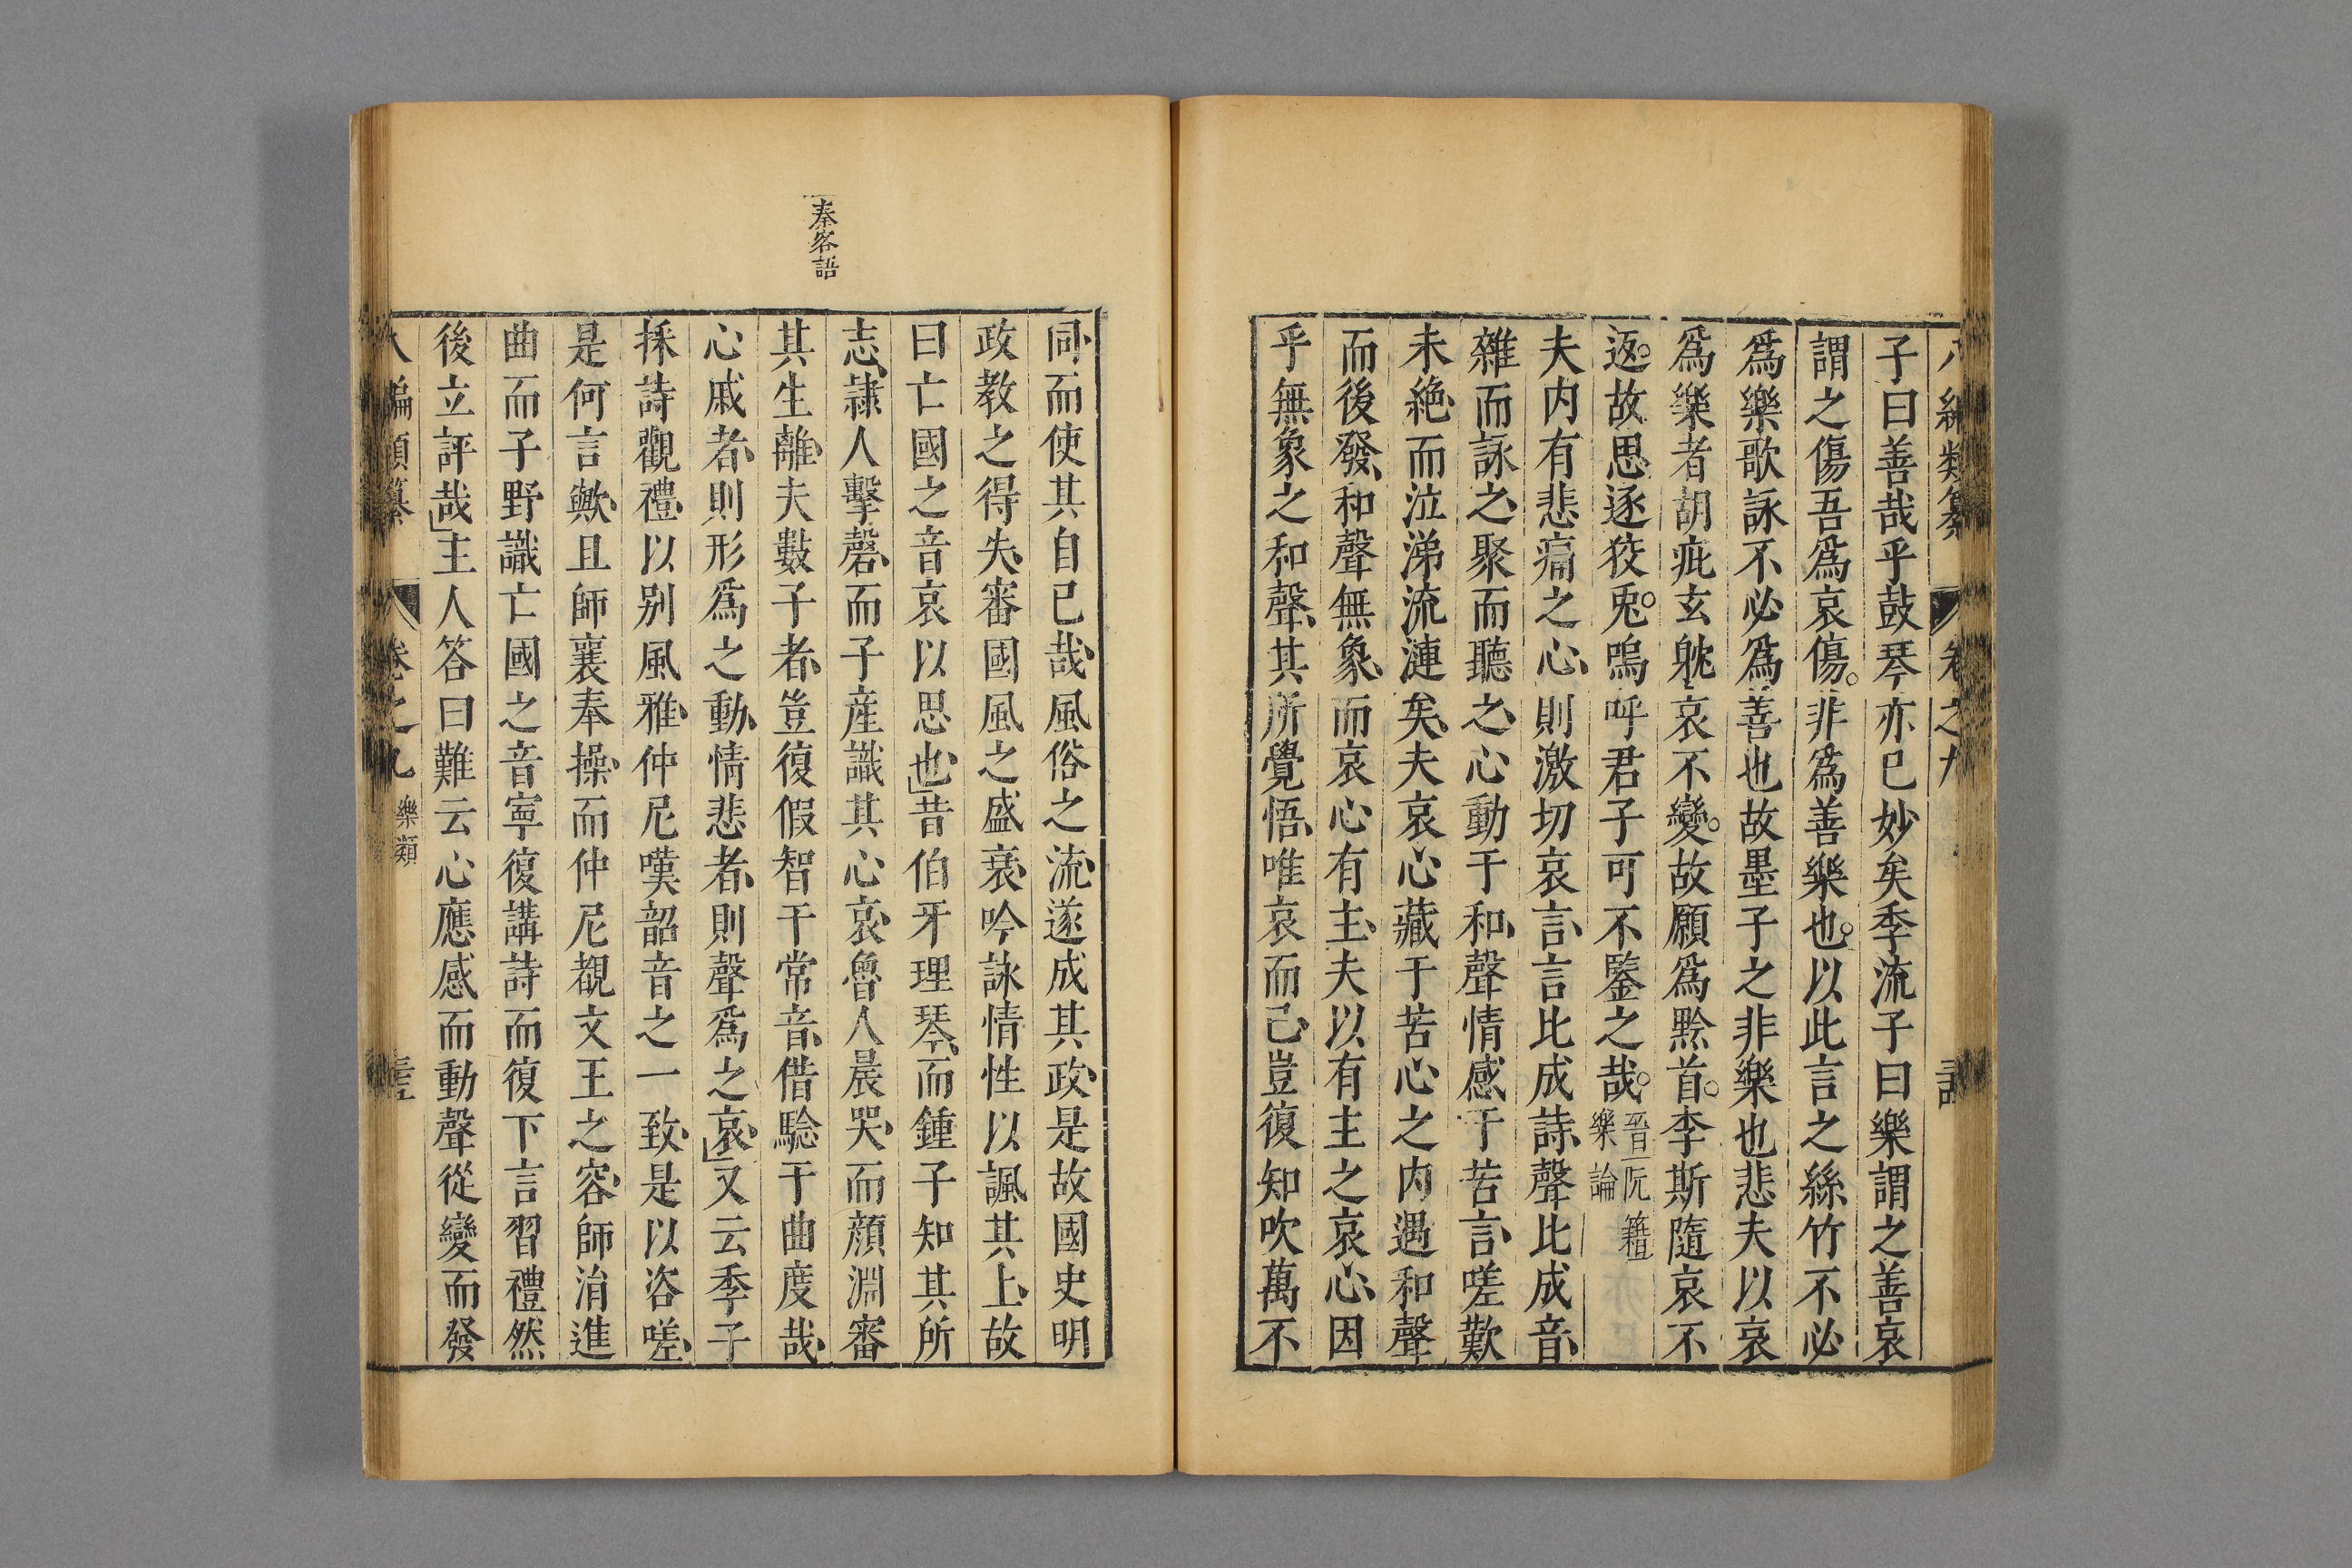 子曰善哉乎鼓琴亦已妙矣季流子曰樂謂之善哀
謂之傷吾爲哀傷非爲善樂也以此言之絲竹不必
爲樂歌詠不必爲善也故墨子之非樂也悲夫以哀
爲樂者胡疵玄躭哀不變故願爲黔首李斯隨哀不
返故思逐狡兎嗚呼君子可不鑒之哉晉阮籍樂論
夫内有悲痛之心則激切哀言言比成詩聲比成音
雜而詠之聚而聽之心動于和聲情感于苦言嗟歎
未絶而泣涕流漣矣夫哀心藏于苦心之内遇和聲
而後發和聲無象而哀心有主夫以有主之哀心因
乎無象之和聲其所覺悟唯哀而已豈復知吹萬不
秦客語
同而使其自已哉風俗之流遂成其政是故國史明
政教之得失審國風之盛衰吟詠情性以諷其上故
曰亡國之音哀以思也昔伯牙理琴而鍾子知其所
志隷人擊磬而子産識其心哀魯人晨哭而顔淵審
其生離夫數子者豈復假智于常音借驗于曲度哉
心戚者則形爲之動情悲者則聲爲之哀又云季子
採詩觀禮以别風雅仲尼嘆韶音之一致是以咨嗟
是何言歟且師襄奉操而仲尼覩文王之容師涓進
曲而子野識亡國之音寧復講詩而復下言習禮然
後立評哉主人答曰難云心應感而動聲從變而發
編類纂 卷之九 樂類